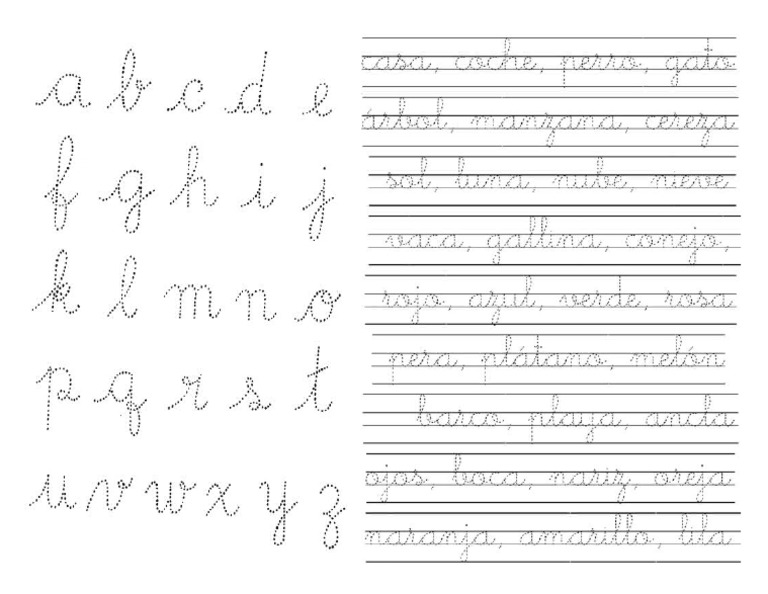 a b c d e
f g h i j
k l m n o
p q r s t
u v w x y z
casa, coche, perro, gato
árbol, manzana, cereza
sol, luna, nube, nieve
vaca, gallina, conejo,
rojo, azul, verde, rosa
pera, plátano, melón
barco, playa, ancla
ojos, boca, nariz, oreja
naranja, amarillo, lila